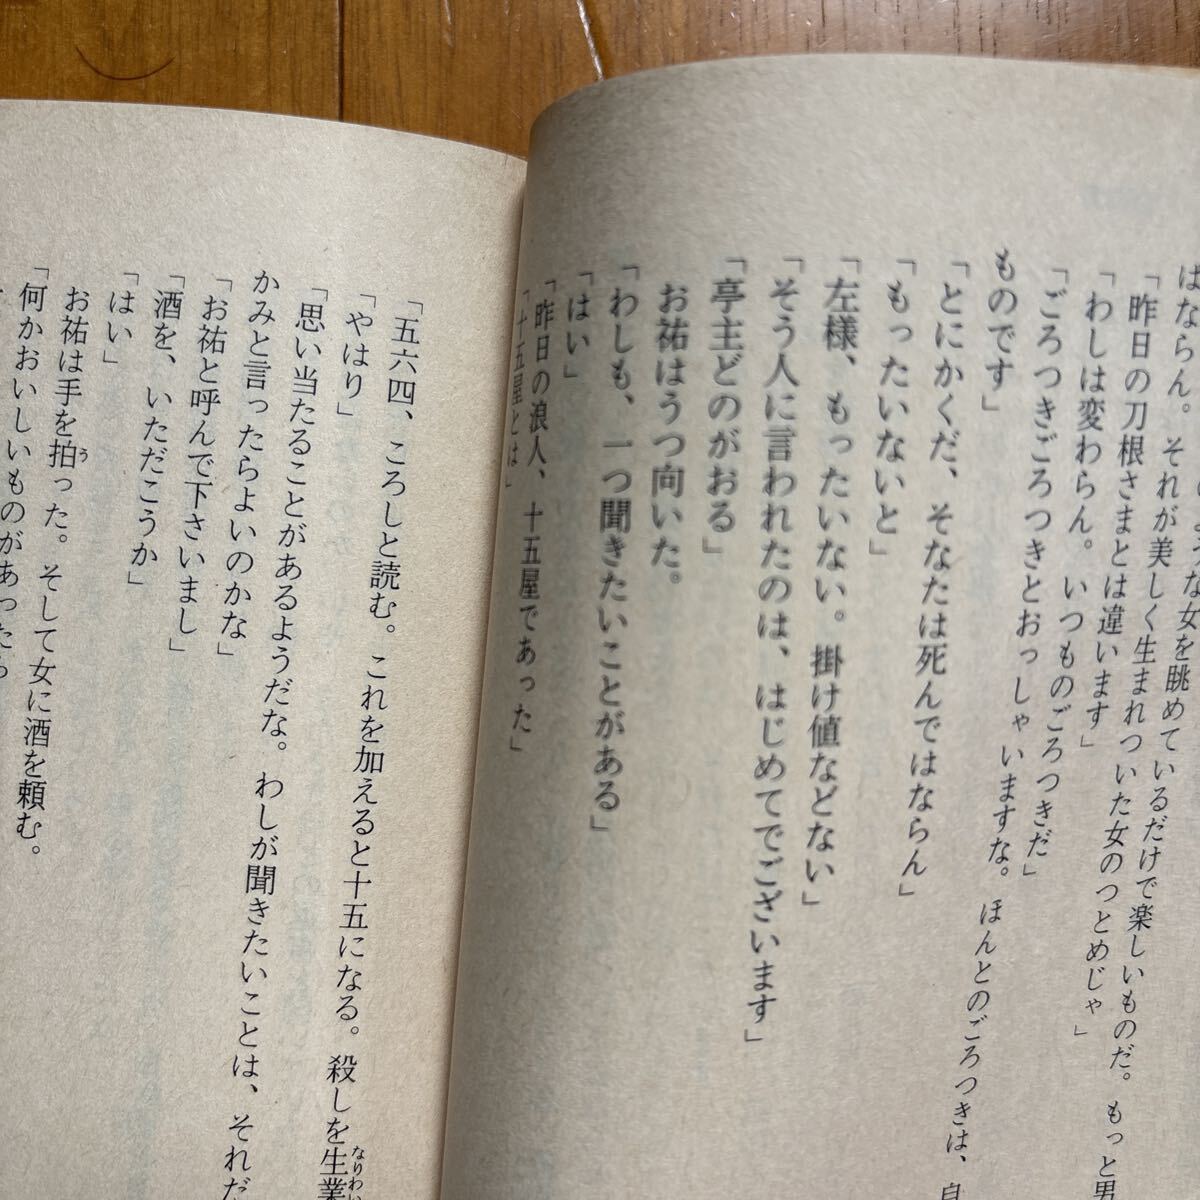 はならん。それが美しく生まれついた女のつとめじゃ」
「昨日の刀根さまとは違います」
「わしは変わらん。いつものごろつきだ」
「ごろつきごろつきとおっしゃいますな。ほんとのごろつきは、
ものです」
「とにかくだ、そなたは死んではならん」
「もったいないと」
「左様、もったいない。掛け値などない」
「そう人に言われたのは、はじめてでございます」
「亭主どのがおる」
お祐はうつ向いた。
「わしも、一つ聞きたいことがある」
「はい」
「昨日の浪人、十五屋であった」
「十五屋とは」
「五六四、ころしと読む。これを加えると十五になる。殺しを生業
「やはり」
「思い当たることがあるようだな。わしが聞きたいことは、それだ
かみと言ったらよいのかな」
「お祐と呼んで下さいまし」
「酒を、いただこうか」
「はい」
お祐は手を拍った。そして女に酒を頼む。
「何かおいしいものがあったら